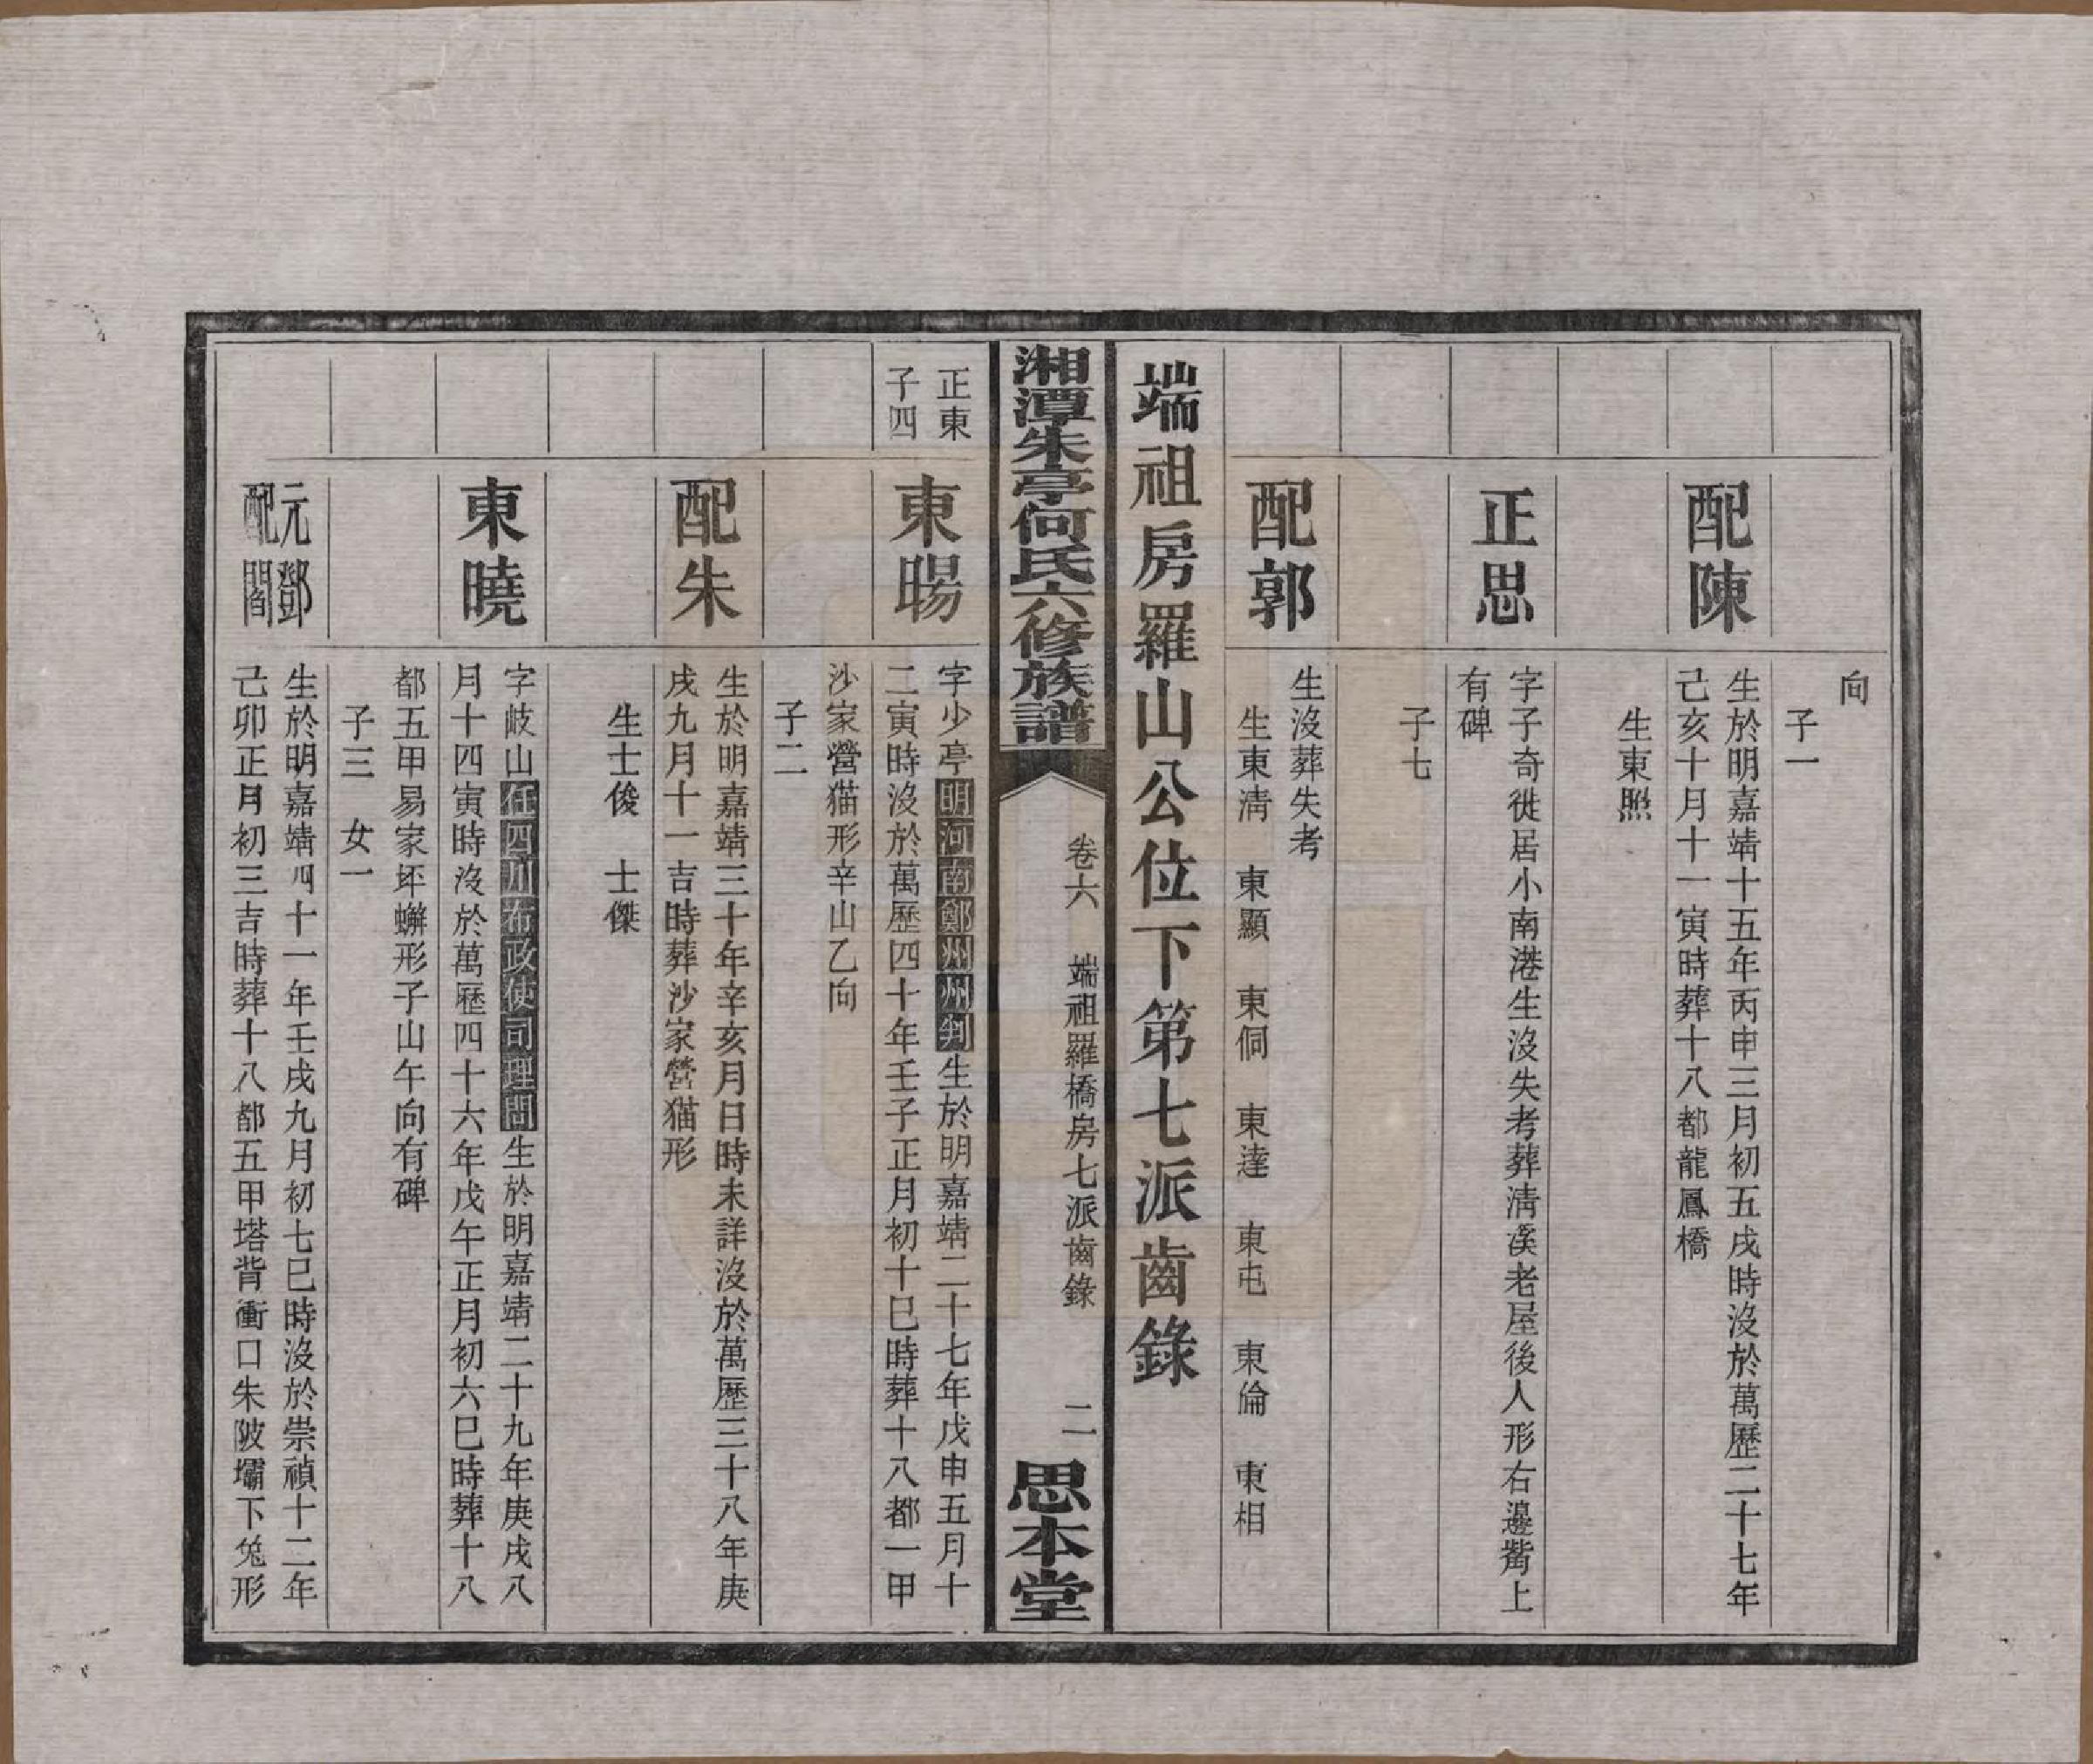 向
子一
配陳
生於明嘉靖十五年丙申三月初五戌時沒於萬歷二十七年
己亥十月十一寅時葬十八都龍鳳橋
生東照
正思
字子奇徙居小南港生沒失考葬清溪老屋後人形右邊觜上
有碑
子七
配郭
生沒葬失考
生東清 東顯 東侗 東達 東屯 東倫 東相
端祖房羅山公位下第七派齒錄
湘潭朱亭何氏六修族譜
卷六 端祖羅橋房七派齒錄 二
思本堂
正東
子四
東暘
字少亭明河南鄭州州判生於明嘉靖二十七年戊申五月十
二寅時沒於萬歷四十年壬子正月初十巳時葬十八都一甲
沙家營猫形辛山乙向
子二
配朱
生於明嘉靖三十年辛亥月日時未詳沒於萬歷三十八年庚
戌九月十一吉時葬沙家營猫形
生士俊 士傑
東曉
字岐山任四川布政使司理問生於明嘉靖二十九年庚戌八
月十四寅時沒於萬歷四十六年戊午正月初六巳時葬十八
都五甲易家坪蠏形子山午向有碑
子三 女一
元鄧
配閻
生於明嘉靖四十一年壬戌九月初七巳時沒於崇禎十二年
己卯正月初三吉時葬十八都五甲塔背衝口朱陂壩下兔形